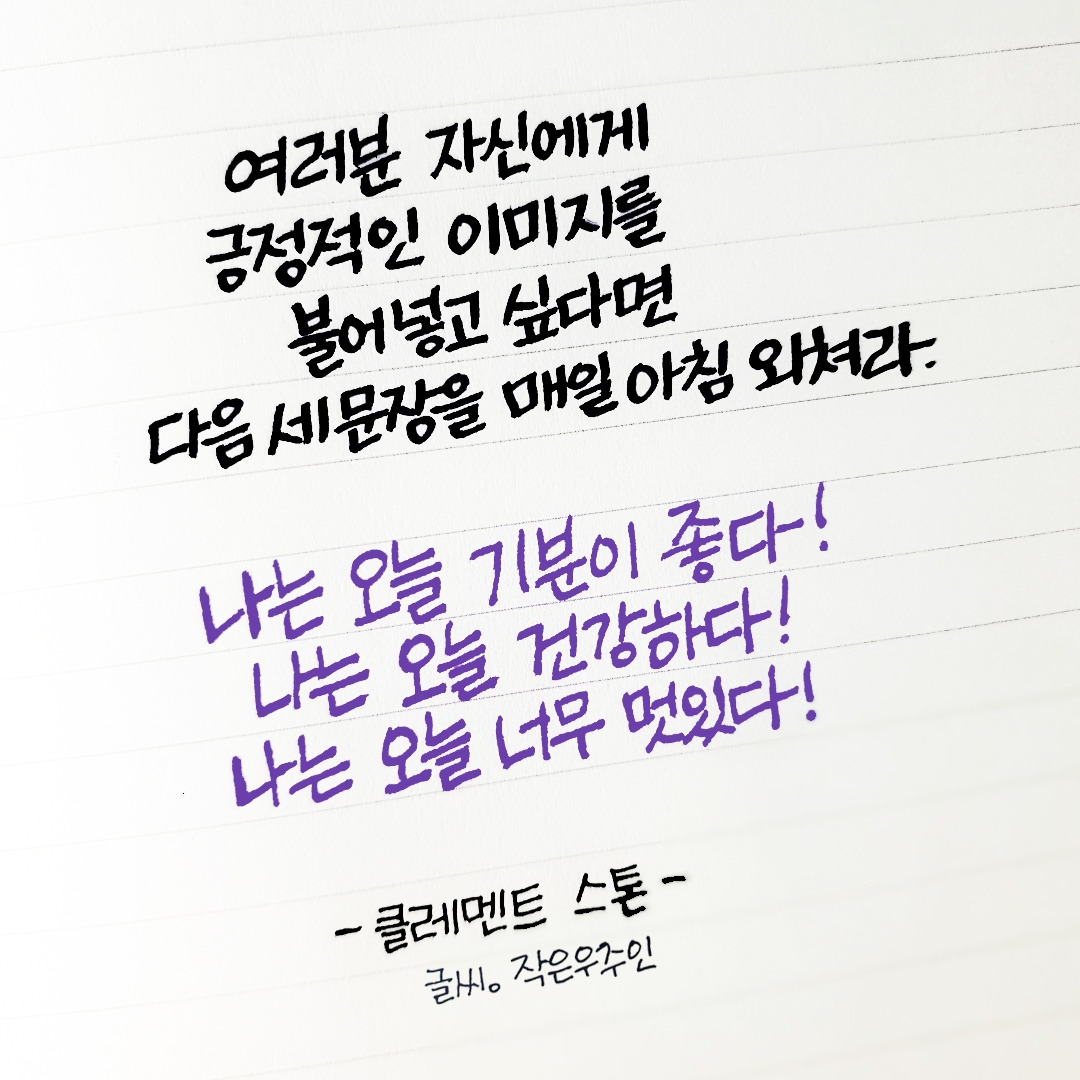 여러분 자신에게
긍정적인 이미지를
불어넣고 싶다면
다음 세문장을 매일 아침 외쳐라.
나는 오늘 기분이 좋다!
나는 오늘 건강하다!
나는 오늘 너무 멋있다!
- 클레멘트 스톤 -
글씨。 작은우주인